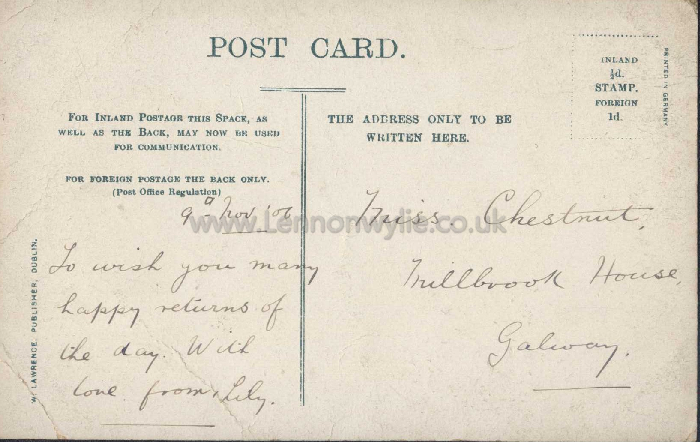 POST CARD.
INLAND
½d.
STAMP.
FOREIGN
1d.
PRINTED IN GERMANY
FOR INLAND POSTAGE THIS SPACE, AS
WELL AS THE BACK, MAY NOW BE USED
FOR COMMUNICATION.
FOR FOREIGN POSTAGE THE BACK ONLY.
(Post Office Regulation)
THE ADDRESS ONLY TO BE
WRITTEN HERE.
9th Nov '06
www.Lennonwylie.co.uk
To wish you many
happy returns of
the day. With
love from, Lily.
Miss Chestnut,
Millbrook House,
Galway.
W. LAWRENCE, PUBLISHER, DUBLIN.